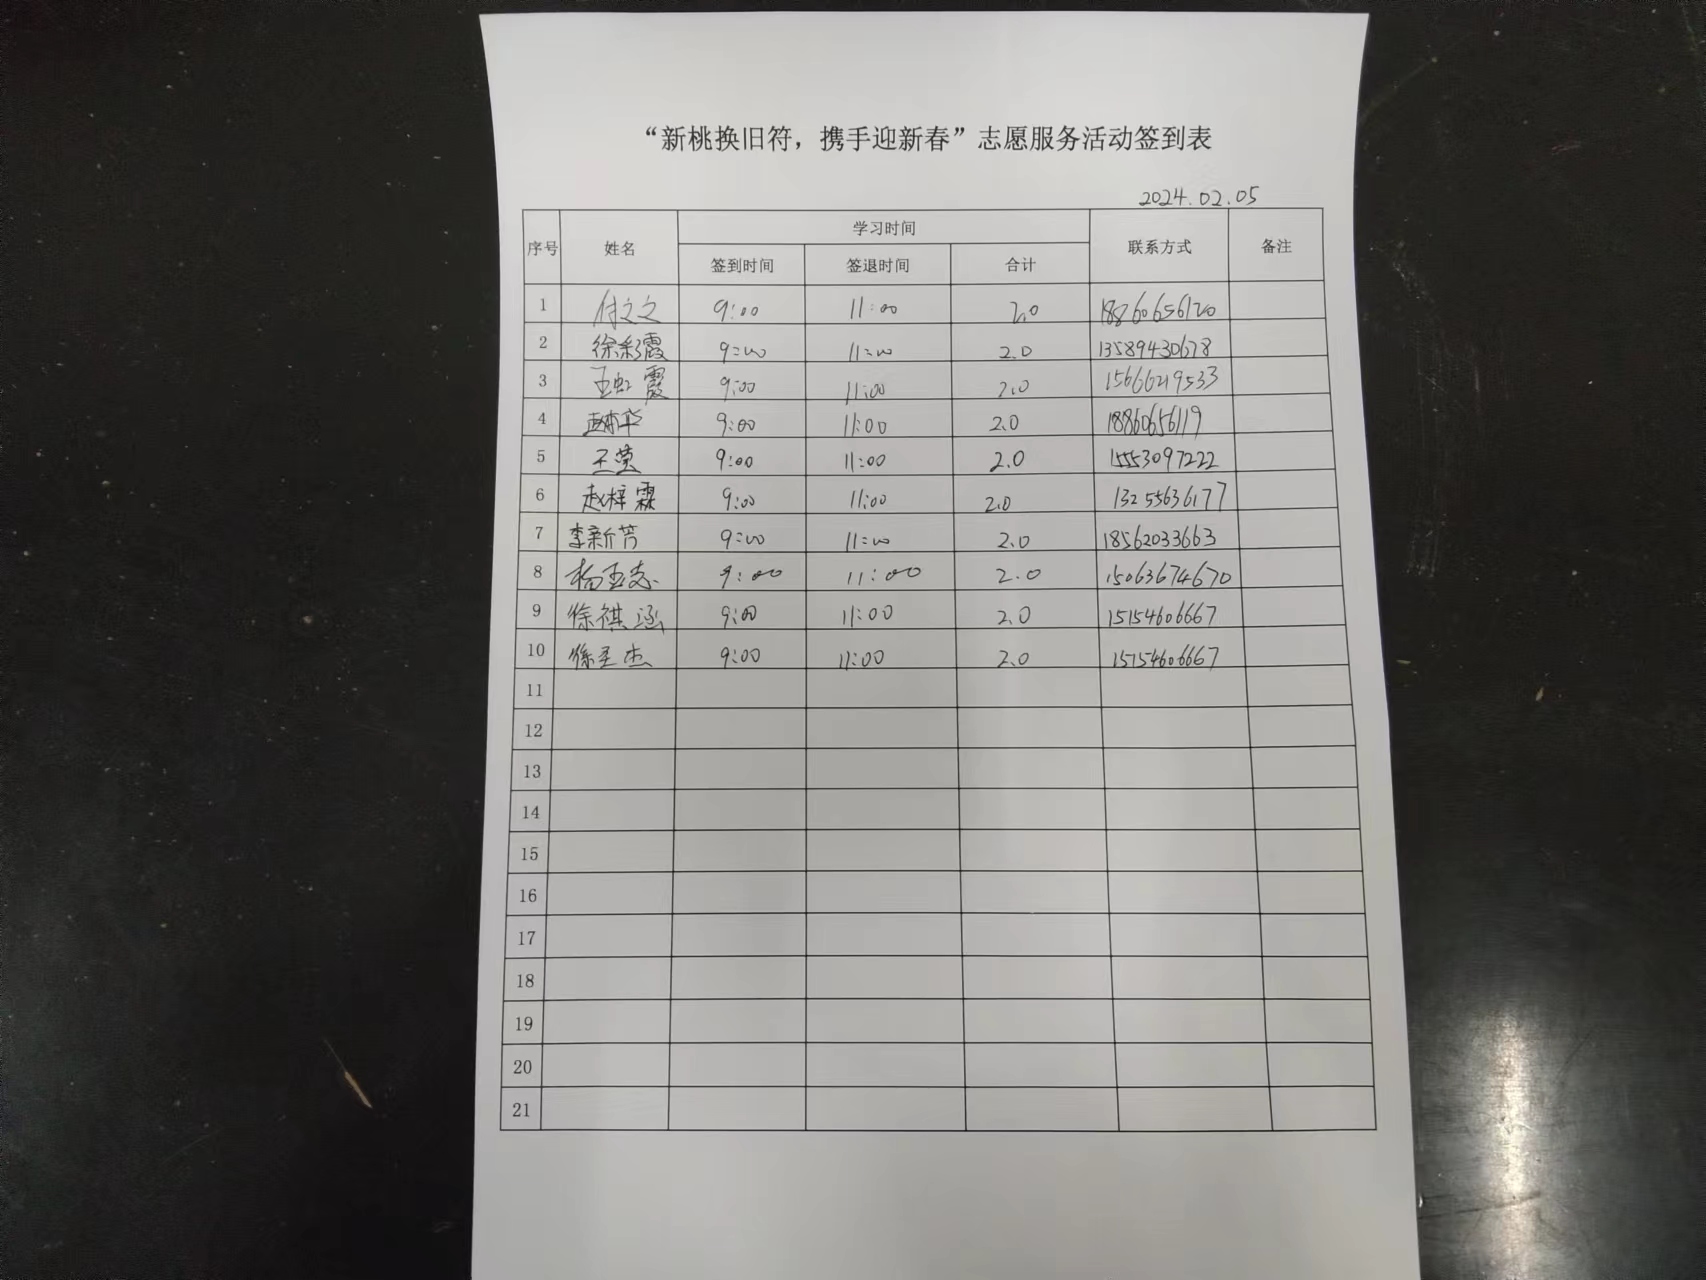 “新桃换旧符，携手迎新春”志愿服务活动签到表
2024.02.05
序号 姓名 学习时间 联系方式 备注
签到时间 签退时间 合计
1 付文文 9:00 11:00 2.0 18860656120
2 徐彩霞 9:00 11:00 2.0 13589430678
3 王虹霞 9:00 11:00 2.0 15666219533
4 9:00 11:00 2.0 18860656119
5 王莹 9:00 11:00 2.0 15553097222
6 赵梓霖 9:00 11:00 2.0 13255636177
7 李新芳 9:00 11:00 2.0 18562033663
8 杨玉志 9:00 11:00 2.0 15063674670
9 徐祺涵 9:00 11:00 2.0 15154606667
10 徐圣杰 9:00 11:00 2.0 15154606667
11
12
13
14
15
16
17
18
19
20
21